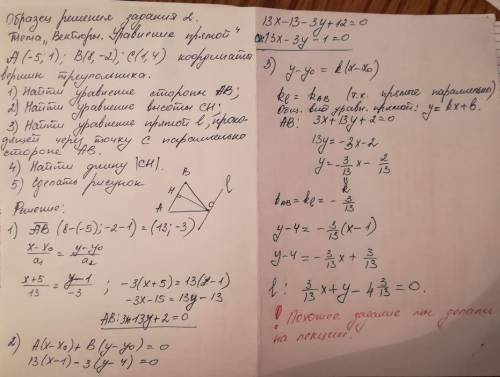 Образец решения задания 2.
Тема „Векторы. Уравнение прямой"
A(-5;1); B(8,-2); C(1,4) координаты
вершин треугольника.
1) Найти уравнение стороны AB;
2) Найти уравнение высоты CH;
3) Найти уравнение прямой l, прохо-
дящей через точку C параллельно
стороне AB.
4) Найти длину |CH|.
5) Сделать рисунок
Решение:
B
H
A
C
l
1) AB (8-(-5); -2-1) = (13; -3)
x-x₀/a₁ = y-y₀/a₂
x+5/13 = y-1/-3 ; -3(x+5) = 13(y-1)
-3x-15 = 13y-13
AB: 3x+13y+2=0
2) A(x-x₀)+B(y-y₀)=0
13(x-1)-3(y-4)=0
13x-13-3y+12=0
CH: 13x-3y-1=0
3) y-y₀ = k(x-x₀)
kₗ = k_AB (т.к. прямые параллельны)
Общ. вид уравн. прямой: y=kx+b.
AB: 3x+13y+2=0
13y=-3x-2
y=-3/13 x - 2/13
k
k_AB = kₗ = -3/13
y-4 = -3/13 (x-1)
y-4 = -3/13 x + 3/13
l: 3/13 x + y - 4 3/13 = 0.
! Похожее задание мы делали
на лекции.